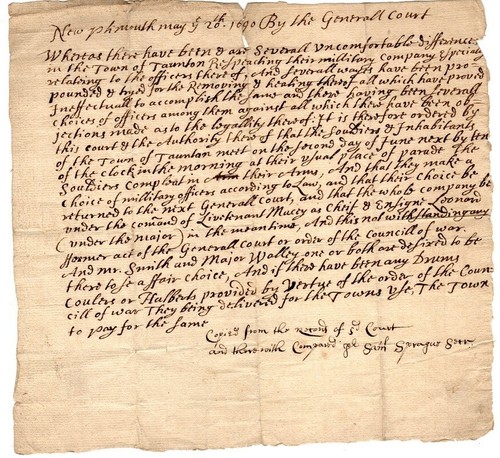 New Plimouth may ye 20th. 1690 By the Generall Court
Whereas there have been & are Severall uncomfortable differences
in the Town of Taunton Respecting their millitary Company Especially
relating to the officers thereof, And Severall wayes have been pro
pounded & tryed for the Removing & healing thereof all which have proved
Ineffectuall to accomplish the same and there having been severall
choices of officers among them against all which there have been ob-
jections made as to the legallity thereof. It is therefore ordered by
this court & the Authority thereof that the Souldiers & Inhabitants
of the Town of Taunton meet on the second day of June next by ten
of the Clock in the morning at their usual place of parade The
Souldiers Compleat in their Arms, And that they make a
Choice of millitary officers according to Law, and that their choice be
returned to the next Generall Court, and that the whole company be
under the comand of Livetenant Macey as Cheif & Ensigne Leonard
(under the major) in the meantime, And this not withstanding any
former act of the Generall Court or order of the Councill of war.
And mr. Smith and Major Walley one or both are desired to be
there to se a fair choice, And if there have been any Drums
Coulers or Halberts provided by Vertue of the order of the Coun
cill of war They being delivered for the Towns use, The Town
to pay for the same
Copied from the record of sd Court
and therewith Compared pr Saml Sprague Secr